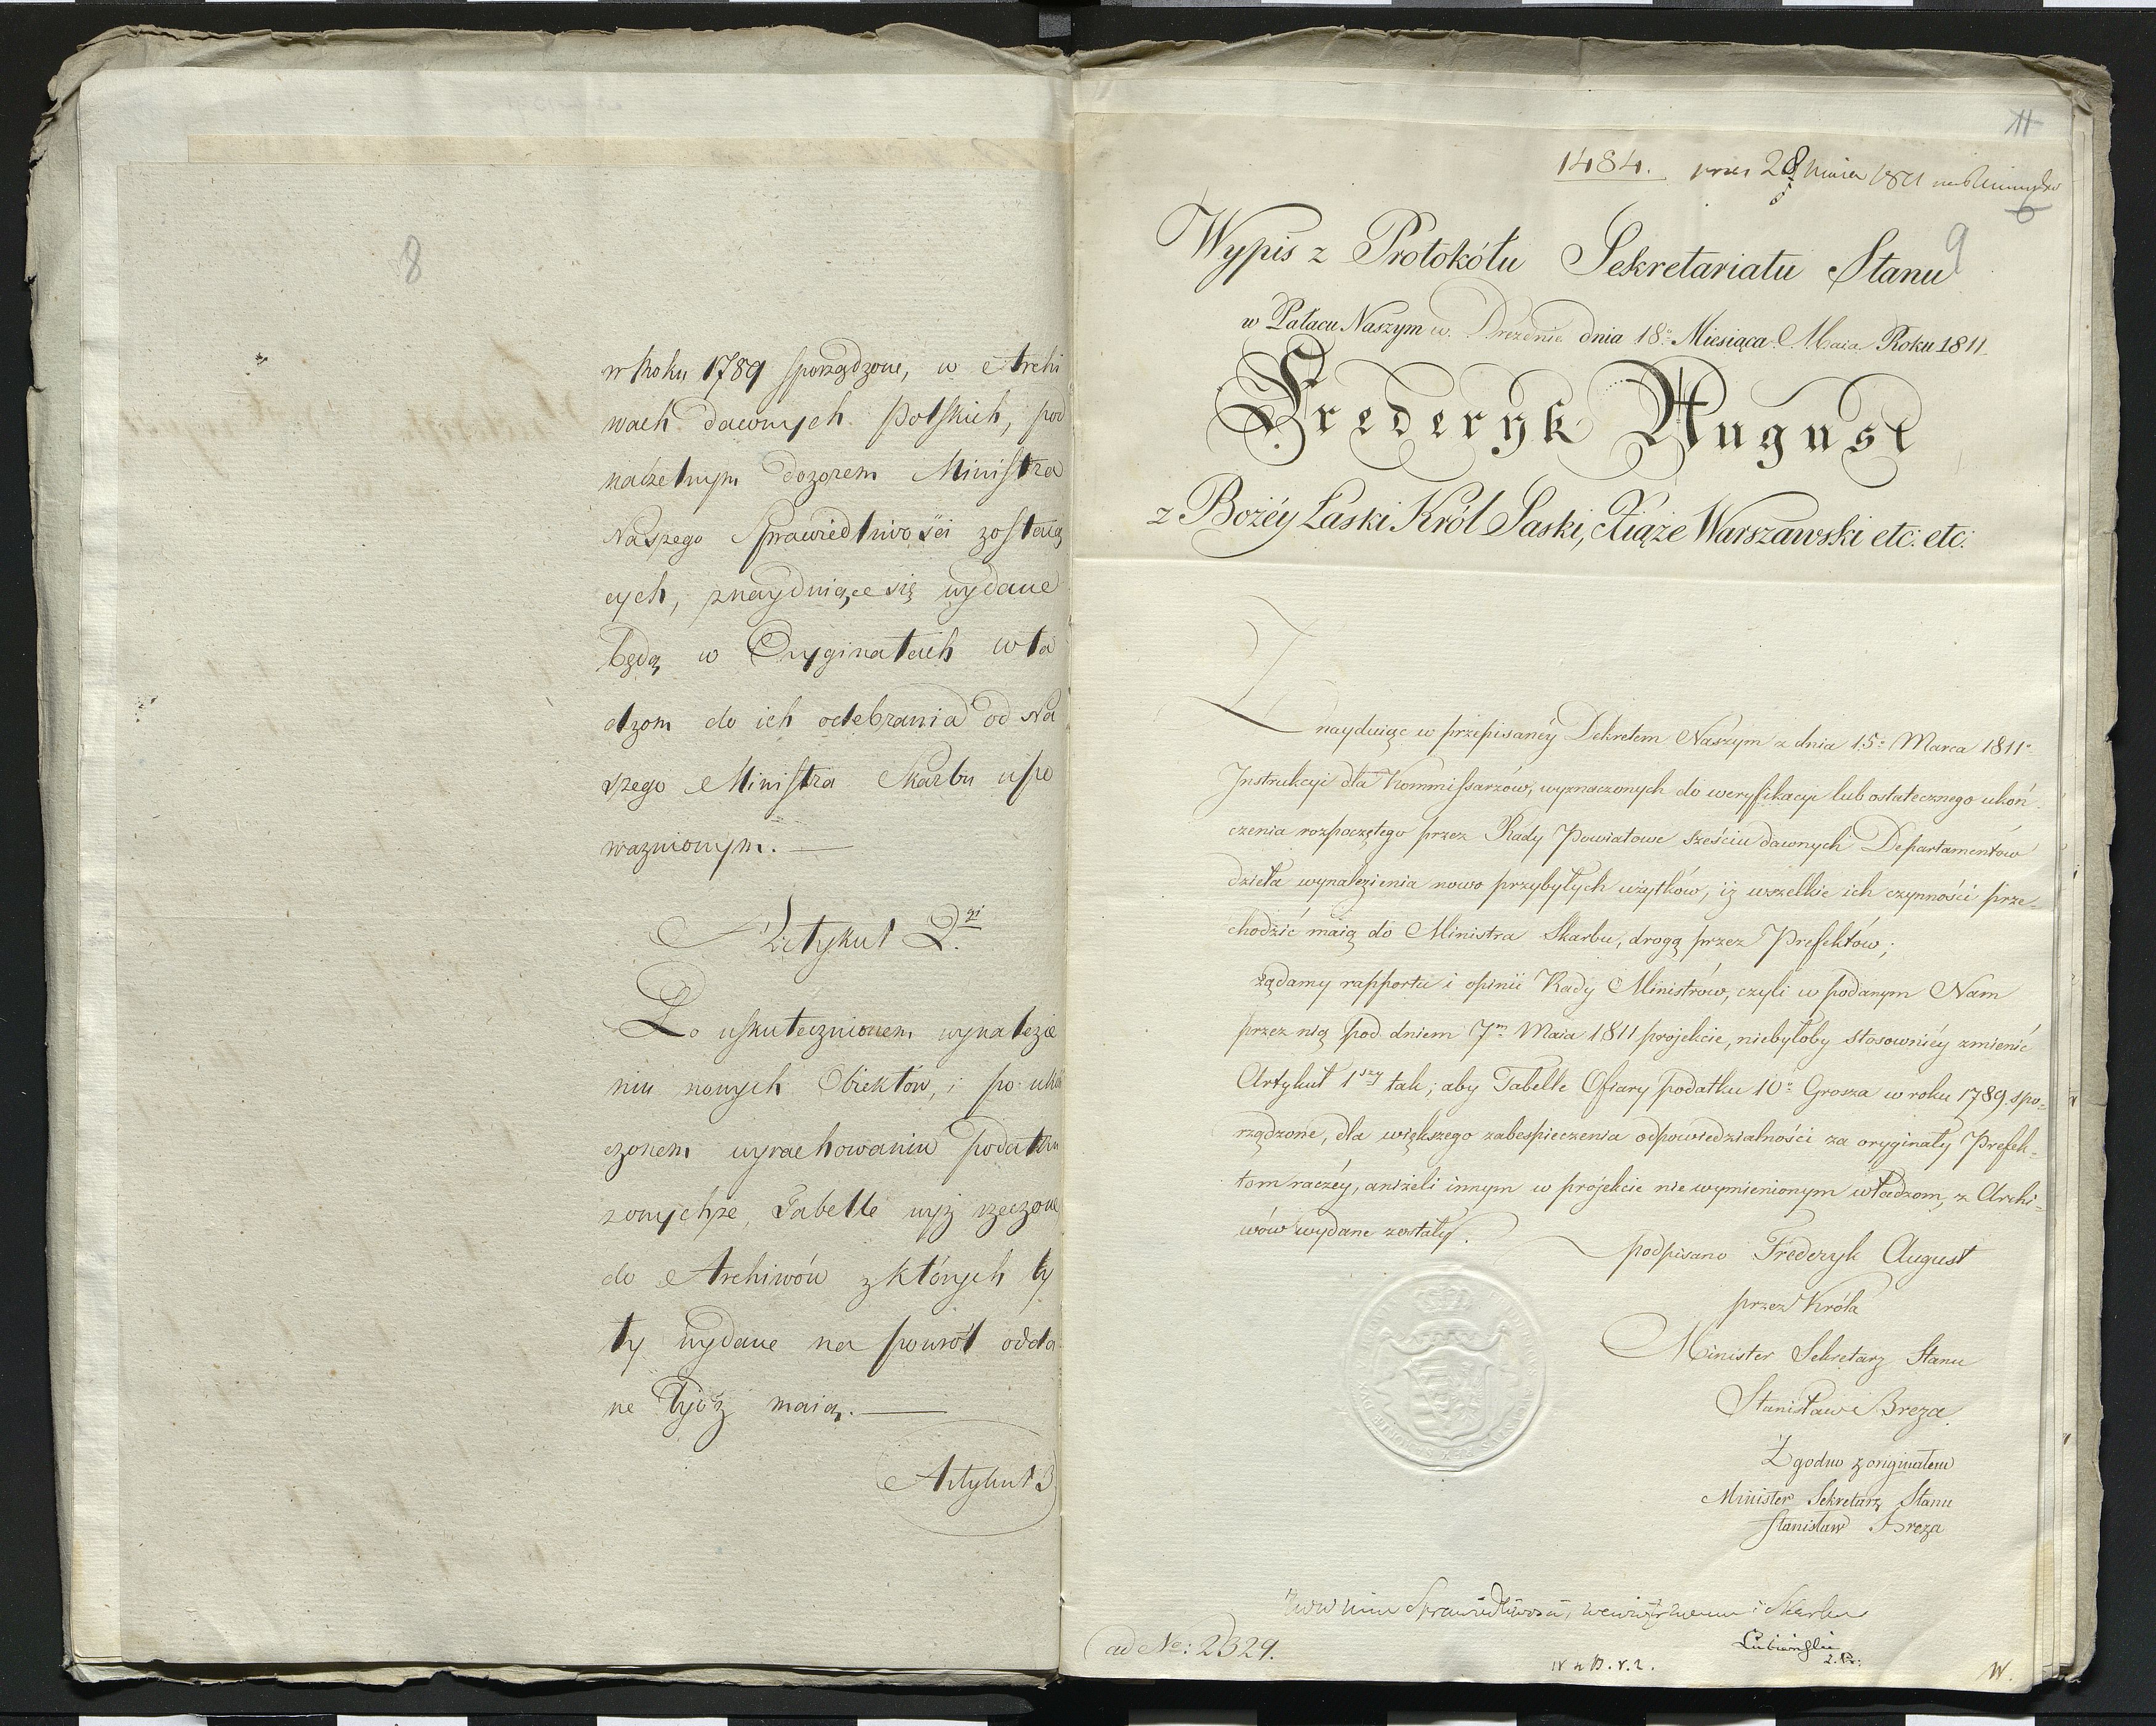 8
w Roku 1789 sporządzone, w Archi
wach dawnych Polskich, pod
naczelnym dozorem Ministra
Naszego Sprawiedliwości zostaią
cych, znayduiące się wydane
będą w Oryginałach wła
dzom do ich odebrania od Na
szego Ministra Skarbu upo
ważnionym. —
Artykuł 2gi
Po uskutecznionem wynalezie
niu nowych Obiektów, i po ukoń
czonem wyrachowaniu podatku
z onychże, Tabelle wyż rzeczone
do Archiwów z których by
ły wydane na powrót odda
ne bydź maią. —
Artykuł 3
11
1484. 28 Maia 1811
6
9
Wypis z Protokółu Sekretariatu Stanu
w Pałacu Naszym w. Dreznie dnia 18o Miesiąca Maia Roku 1811
Frederyk August
z Bożéy Łaski Król Saski, Xiąże Warszawski etc: etc:
Znayduiąc w przepisanéy Dekretem Naszym z dnia 15o Marca 1811o
Instrukcyi dla Kommissarzów, wyznaczonych do weryfikacyi lub ostatecznego ukoń-
czenia rozpoczętego przez Rady Powiatowe sześciu dawnych Departamentów
dzieła wynalezienia nowo przybyłych użytków, iż wszelkie ich czynności prze-
chodzić maią do Ministra Skarbu, drogą przez Prefektów;
żądamy rapportu i opinii Rady Ministrów, czyli w podanym Nam
przez nią pod dniem 7m Maia 1811 projekcie, niebyłoby stosowniéy zmienić
Artykuł 1szy tak; aby Tabelle Ofiary podatku 10o Grosza w roku 1789 spo-
rządzone, dla większego zabespieczenia odpowiedzialności za oryginały Prefek-
tom raczéy, aniżeli innym w projekcie nie wymienionym władzom, z Archi-
wów wydane zostały.
podpisano Frederyk August
przez Króla
Minister Sekretarz Stanu
Stanisław Breza.
Zgodno z originałem
Minister Sekretarz Stanu
Stanisław Breza
Sprawiedliwości, wewnętrznemu i Skarbu
Łubieński
ad No: 2329.
W.